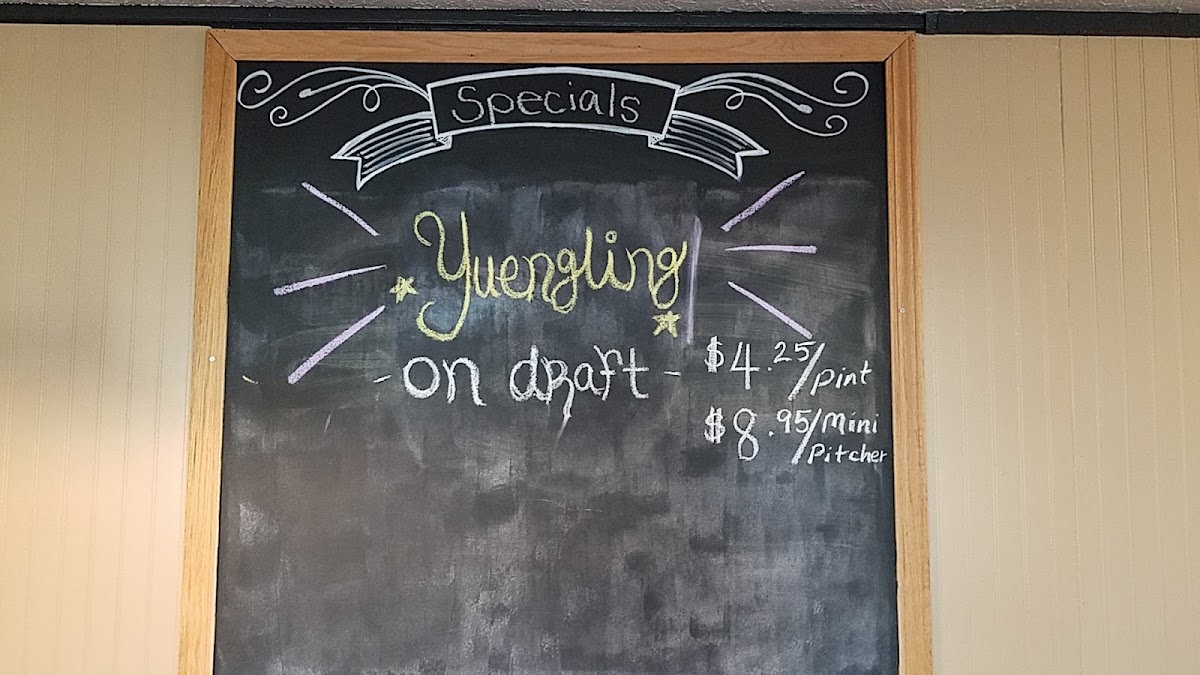 Specials
Yuengling
- on draft -
$4.25/pint
$8.95/Mini
Pitcher